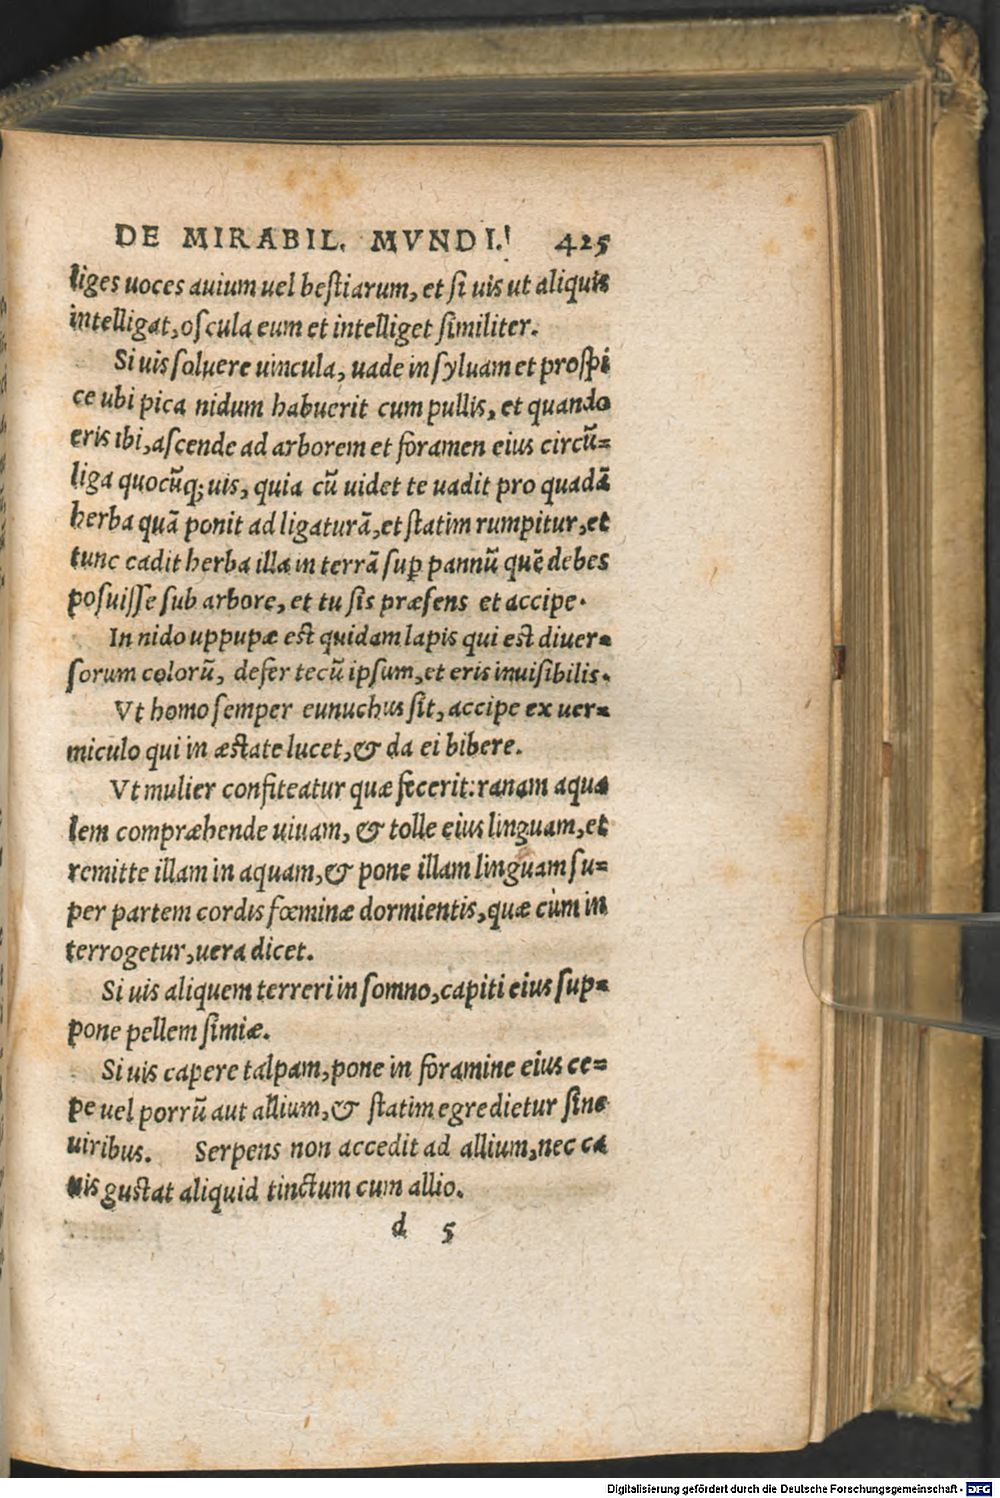 DE MIRABIL. MVNDI. 425
liges uoces auium uel bestiarum, et si uis ut aliquis
intelligat, oscula eum et intelliget similiter.
Si uis soluere uincula, uade in syluam et prospi
ce ubi pica nidum habuerit cum pullis, et quando
eris ibi, ascende ad arborem et foramen eius circũ-
liga quocũq; uis, quia cũ uidet te uadit pro quadã
herba quã ponit ad ligaturã, et statim rumpitur, et
tunc cadit herba illa in terrã sup̱ pannũ quẽ debes
posuisse sub arbore, et tu sis præsens et accipe.
In nido uppupæ est quidam lapis qui est diuer-
sorum colorũ, defer tecũ ipsum, et eris inuisibilis.
Vt homo semper eunuchus sit, accipe ex uer-
miculo qui in æstate lucet, & da ei bibere.
Vt mulier confiteatur quæ fecerit: ranam aqua
lem compræhende uiuam, & tolle eius linguam, et
remitte illam in aquam, & pone illam linguam su-
per partem cordis fœminæ dormientis, quæ cùm in
terrogetur, uera dicet.
Si uis aliquem terreri in somno, capiti eius sup-
pone pellem simiæ.
Si uis capere talpam, pone in foramine eius ce-
pe uel porrũ aut allium, & statim egredietur sine
uiribus. Serpens non accedit ad allium, nec ca
nis gustat aliquid tinctum cum allio.
d 5
Digitalisierung gefördert durch die Deutsche Forschungsgemeinschaft - DFG